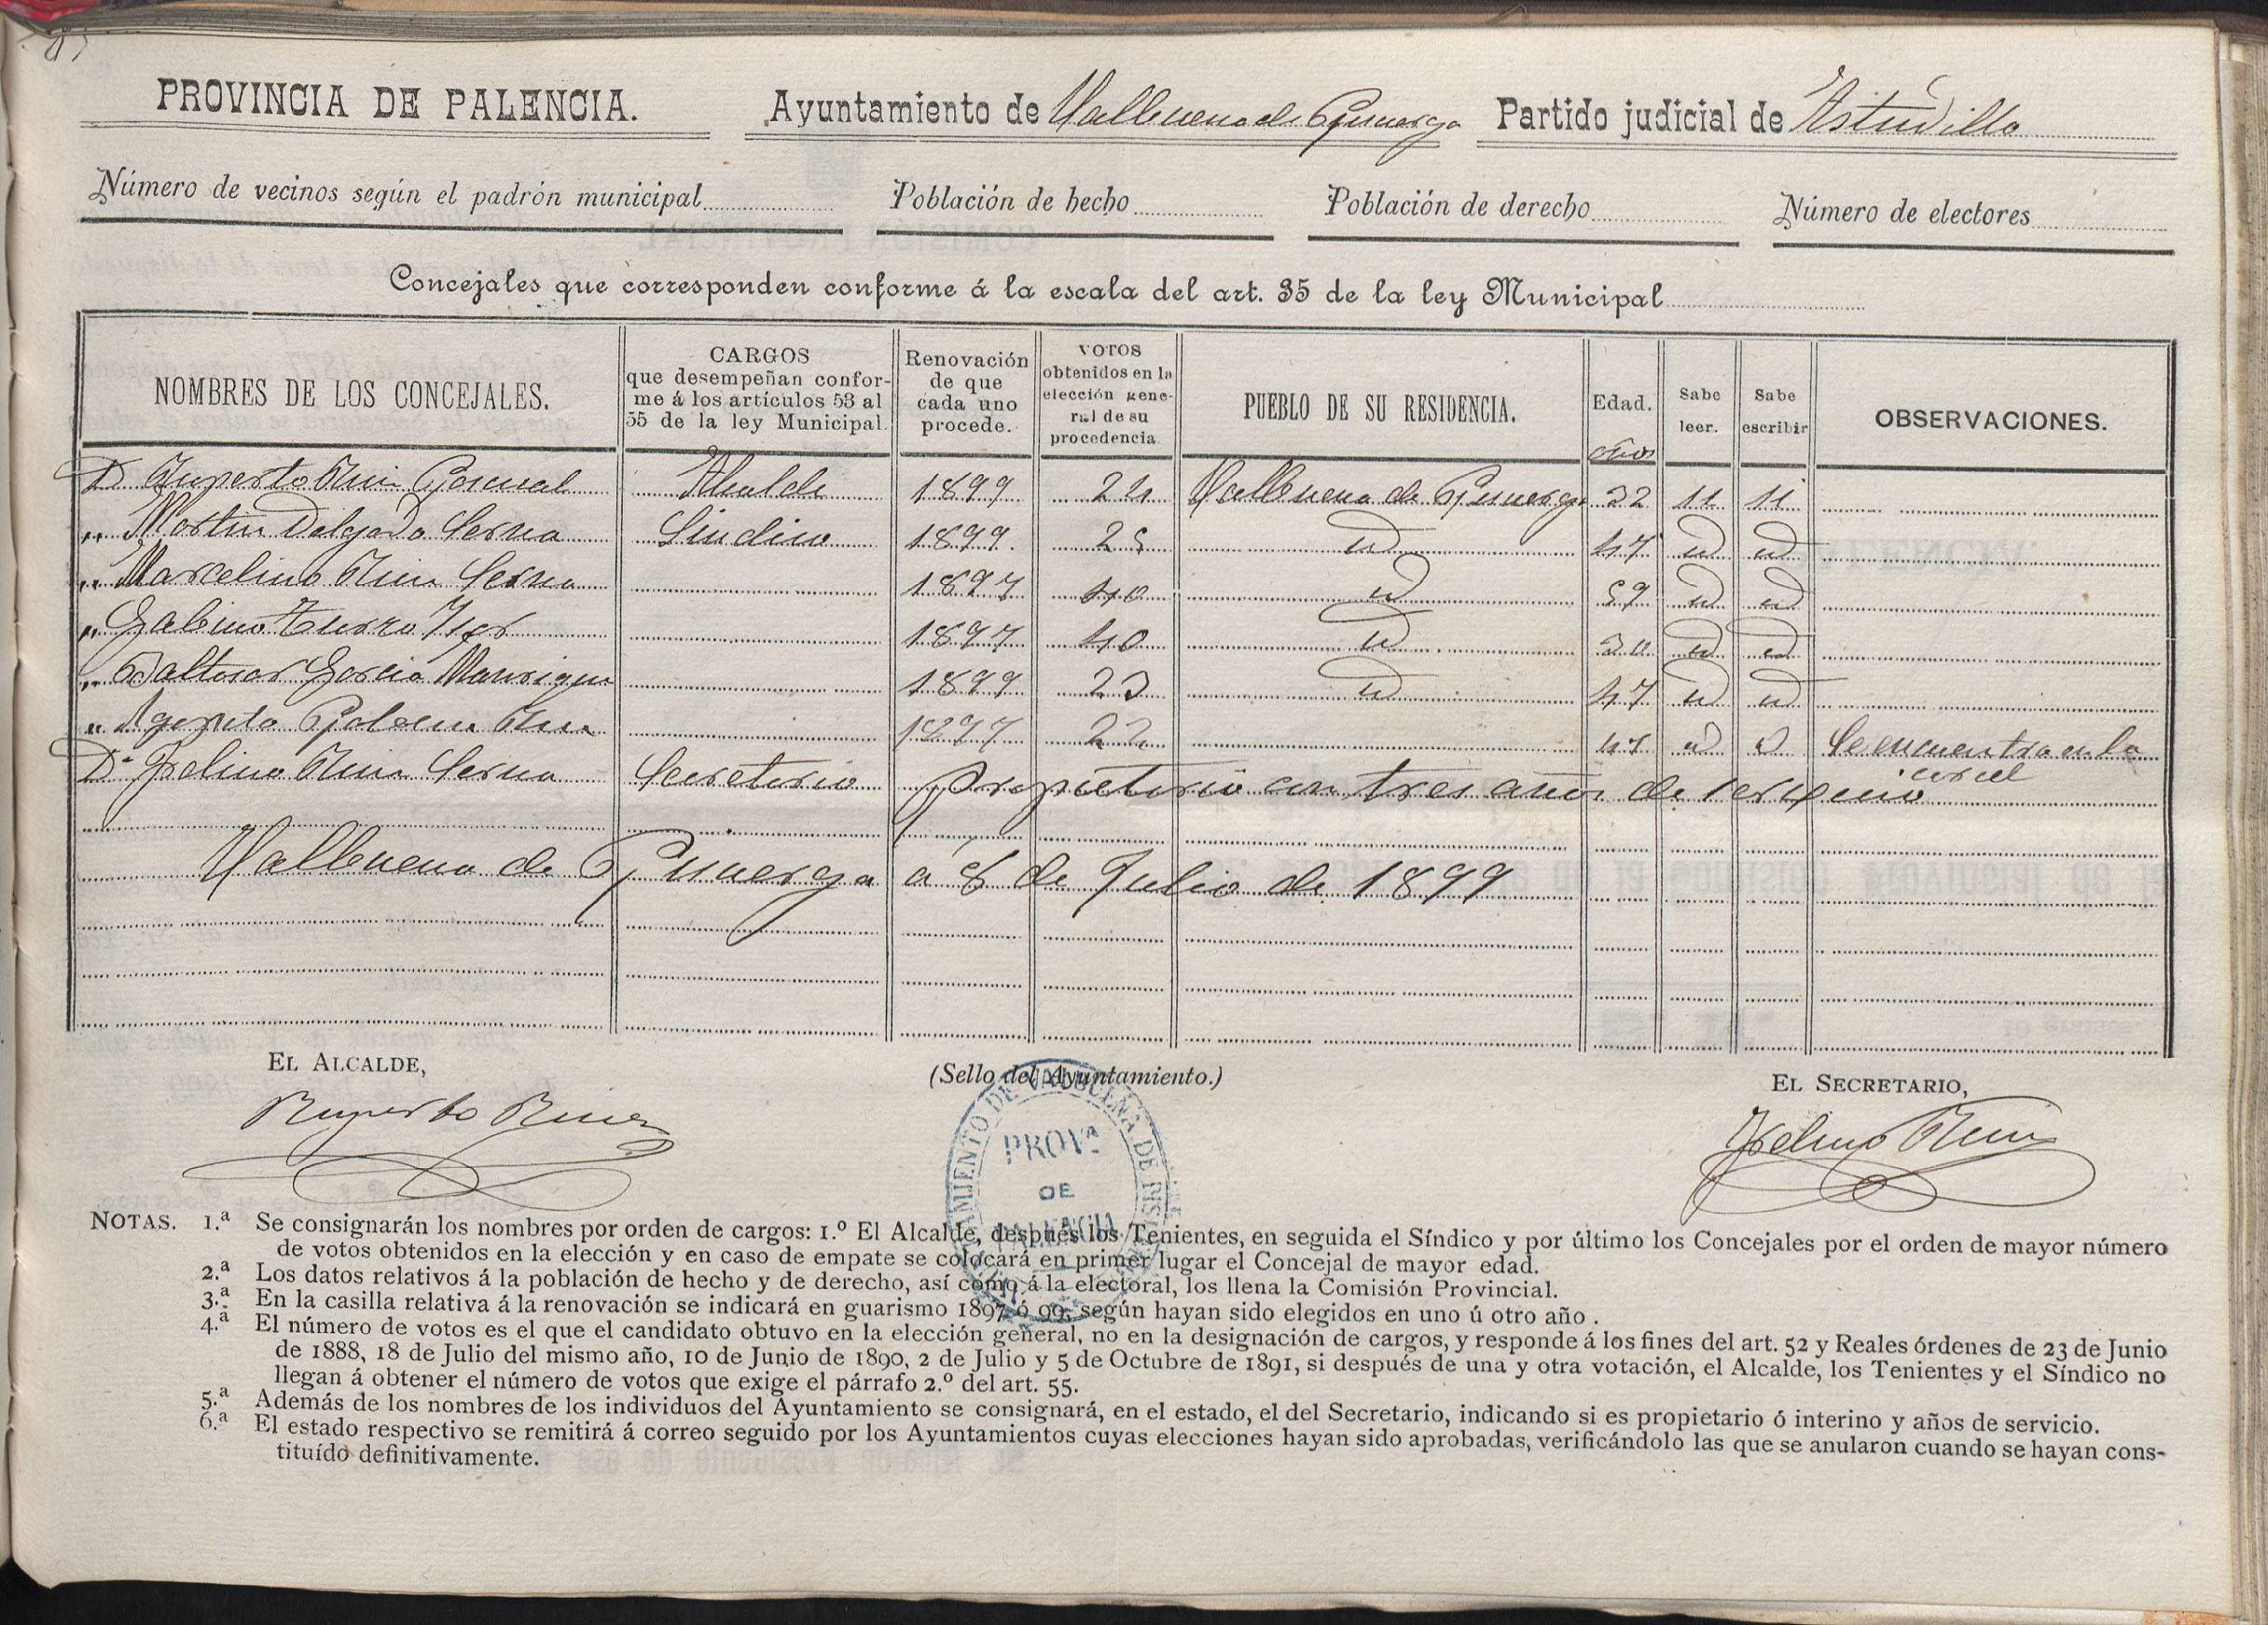 PROVINCIA DE PALENCIA. Ayuntamiento de Valbuena de Pisuerga Partido judicial de Astudillo
Número de vecinos según el padrón municipal Población de hecho Población de derecho Número de electores
Concejales que corresponden conforme á la escala del art. 35 de la ley Municipal
NOMBRES DE LOS CONCEJALES. CARGOS que desempeñan confor- me á los artículos 53 al 55 de la ley Municipal. Renovación de que cada uno procede. VOTOS obtenidos en la elección gene- ral de su procedencia. PUEBLO DE SU RESIDENCIA. Edad. años Sabe leer. Sabe escribir OBSERVACIONES.
D Ruperto Ruiz Pascual Alcalde 1899 24 Valbuena de Pisuerga 32 si si
„ Martin Delgado Serna Sindico 1899 25 id 47 id id
„ Marcelino Ruiz Serna 1897 40 id 59 id id
„ Gabino 1897 40 id 30 id id
„ Baltasar Garcia Manrique 1899 23 id 47 id id
„ Agapito Ruiz 1897 22 47 id id Se encuentra en la carcel
D. Ruiz Serna Secretario propietario con tres años de servicio
Valbuena de Pisuerga a 8 de Julio de 1899
EL ALCALDE, (Sello del Ayuntamiento.) EL SECRETARIO,
Ruperto Ruiz
Ruiz
AYUNTAMIENTO DE VALBUENA DE PISUERGA
PROVª
DE
PALENCIA
NOTAS. 1.ª Se consignarán los nombres por orden de cargos: 1.º El Alcalde, después los Tenientes, en seguida el Síndico y por último los Concejales por el orden de mayor número
de votos obtenidos en la elección y en caso de empate se colocará en primer lugar el Concejal de mayor edad.
2.ª Los datos relativos á la población de hecho y de derecho, así como á la electoral, los llena la Comisión Provincial.
3.ª En la casilla relativa á la renovación se indicará en guarismo 1897 ó 99, según hayan sido elegidos en uno ú otro año.
4.ª El número de votos es el que el candidato obtuvo en la elección general, no en la designación de cargos, y responde á los fines del art. 52 y Reales órdenes de 23 de Junio
de 1888, 18 de Julio del mismo año, 10 de Junio de 1890, 2 de Julio y 5 de Octubre de 1891, si después de una y otra votación, el Alcalde, los Tenientes y el Síndico no
llegan á obtener el número de votos que exige el párrafo 2.º del art. 55.
5.ª Además de los nombres de los individuos del Ayuntamiento se consignará, en el estado, el del Secretario, indicando si es propietario ó interino y años de servicio.
6.ª El estado respectivo se remitirá á correo seguido por los Ayuntamientos cuyas elecciones hayan sido aprobadas, verificándolo las que se anularon cuando se hayan cons-
tituído definitivamente.